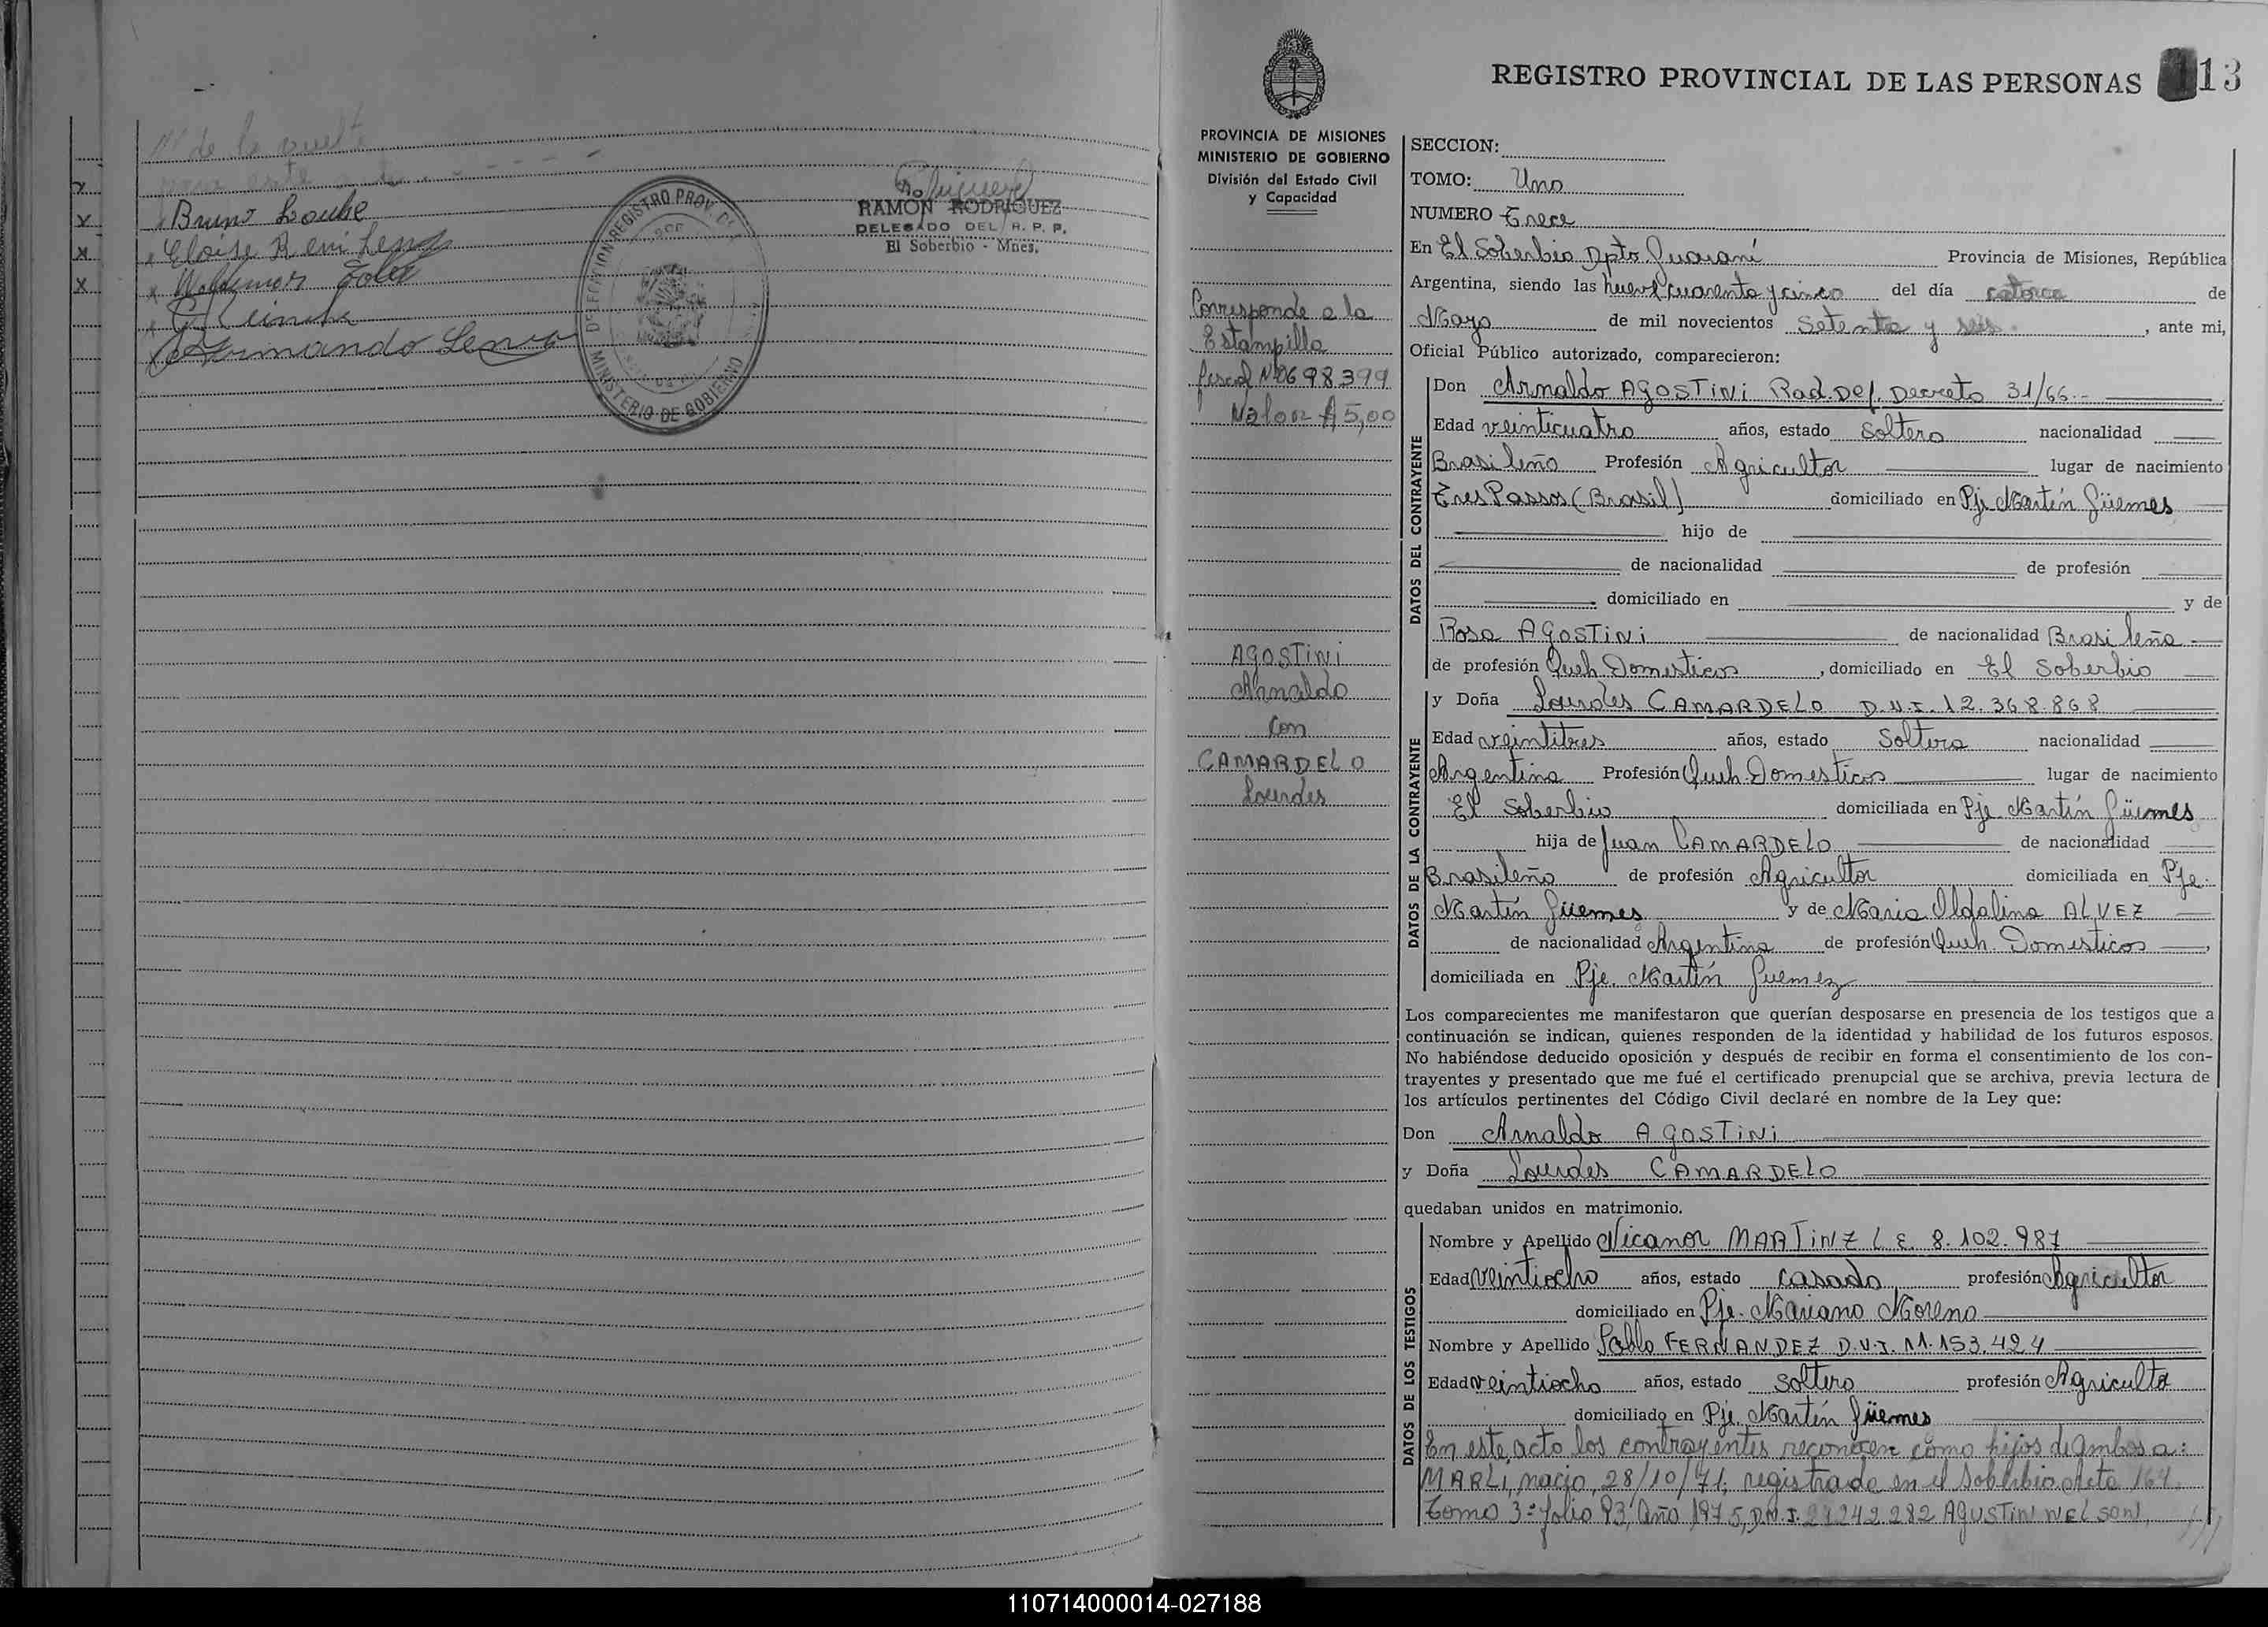 Nº de la vuelta
para este acto
Bruno
Eloise
Waldemar
Armando
RAMON RODRIGUEZ
DELEGADO DEL R. P. P.
El Soberbio - Mnes.
DIRECCION REGISTRO PROV. DE
MINISTERIO DE GOBIERNO
REGISTRO PROVINCIAL DE LAS PERSONAS 13
PROVINCIA DE MISIONES
MINISTERIO DE GOBIERNO
División del Estado Civil
y Capacidad
Corresponde a la
Estampilla
fiscal Nº 0698399
Valor $ 5,00
AGOSTINI
Arnaldo
Con
CAMARDELO
Lourdes
SECCION:
TOMO: Uno
NUMERO Trece
En El Soberbio Dpto Guaraní Provincia de Misiones, República
Argentina, siendo las nueve cuarenta y cinco del día catorce de
Mayo de mil novecientos Setenta y seis, ante mi,
Oficial Público autorizado, comparecieron:
DATOS DEL CONTRAYENTE
Don Arnaldo AGOSTINI Rad. Def. Decreto 31/66.-
Edad veinticuatro años, estado Soltero nacionalidad
Brasileño Profesión Agricultor lugar de nacimiento
Tres Passos (Brasil) domiciliado en Pje Martín Güemes
hijo de
de nacionalidad de profesión
domiciliado en y de
Rosa AGOSTINI de nacionalidad Brasileña
de profesión Queh. Domesticos, domiciliado en El Soberbio
DATOS DE LA CONTRAYENTE
y Doña Lourdes CAMARDELO D.N.I. 12.368.868
Edad veintitres años, estado Soltera nacionalidad
Argentina Profesión Queh. Domesticos lugar de nacimiento
El Soberbio domiciliada en Pje. Martín Güemes
hija de Juan CAMARDELO de nacionalidad
Brasileño de profesión Agricultor domiciliada en Pje.
Martín Güemes y de Maria Oldalina ALVEZ
de nacionalidad Argentina de profesión Queh. Domesticos,
domiciliada en Pje. Martín Guemez
Los comparecientes me manifestaron que querían desposarse en presencia de los testigos que a
continuación se indican, quienes responden de la identidad y habilidad de los futuros esposos.
No habiéndose deducido oposición y después de recibir en forma el consentimiento de los con-
trayentes y presentado que me fué el certificado prenupcial que se archiva, previa lectura de
los artículos pertinentes del Código Civil declaré en nombre de la Ley que:
Don Arnaldo AGOSTINI
y Doña Lourdes CAMARDELO
quedaban unidos en matrimonio.
DATOS DE LOS TESTIGOS
Nombre y Apellido Nicanor MARTINZ L.E. 8.102.987
Edad veintiocho años, estado casado profesión Agricultor
domiciliado en Pje. Mariano Moreno
Nombre y Apellido Pablo FERNANDEZ D.N.I. 11.153.424
Edad veintiocho años, estado soltero profesión Agricultor
domiciliado en Pje. Martín Güemes
En este acto los contrayentes reconocen como hijos de ambos a:
MARLI, nacio 28/10/71, registrada en el Soberbio Acta 164
Tomo 3º folio 93, Año 1975, D.N.I. 24242.282 AGUSTIN NELSON,
110714000014-027188